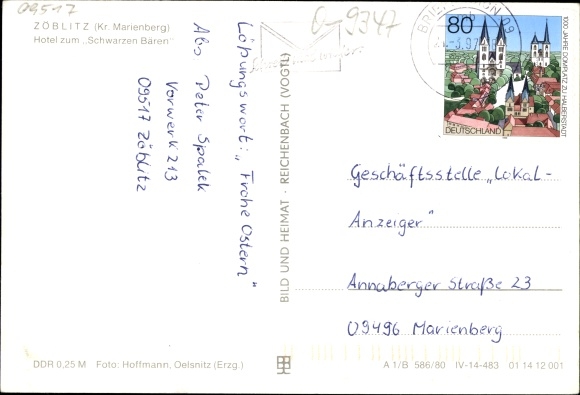 09517
ZÖBLITZ (Kr. Marienberg)
Hotel zum „Schwarzen Bären"
Löpungswort: „Frohe Ostern"
Abs Peter Spalek
Vorwerk 213
09517 Zöblitz
DDR 0,25 M Foto: Hoffmann, Oelsnitz (Erzg.)
BILD UND HEIMAT · REICHENBACH (VOGTL)
0-9347
80
1000 JAHRE DOMPLATZ ZU HALBERSTADT
DEUTSCHLAND
Geschäftsstelle „Lokal-
Anzeiger"
Annaberger Straße 23
09496 Marienberg
A 1/B 586/80 IV-14-483 01 14 12 001